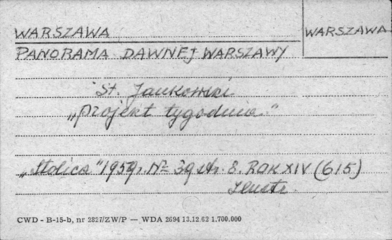 WARSZAWA
WARSZAWA
PANORAMA DAWNEJ WARSZAWY
St. Jankowski
„projekt tygodnia."
„Stolica" 1959 r. Nº 39 str. 8. ROK XIV (615)
Ilustr.
CWD - B-15-b, nr 2827/ZW/P — WDA 2694 13.12.62 1.700.000